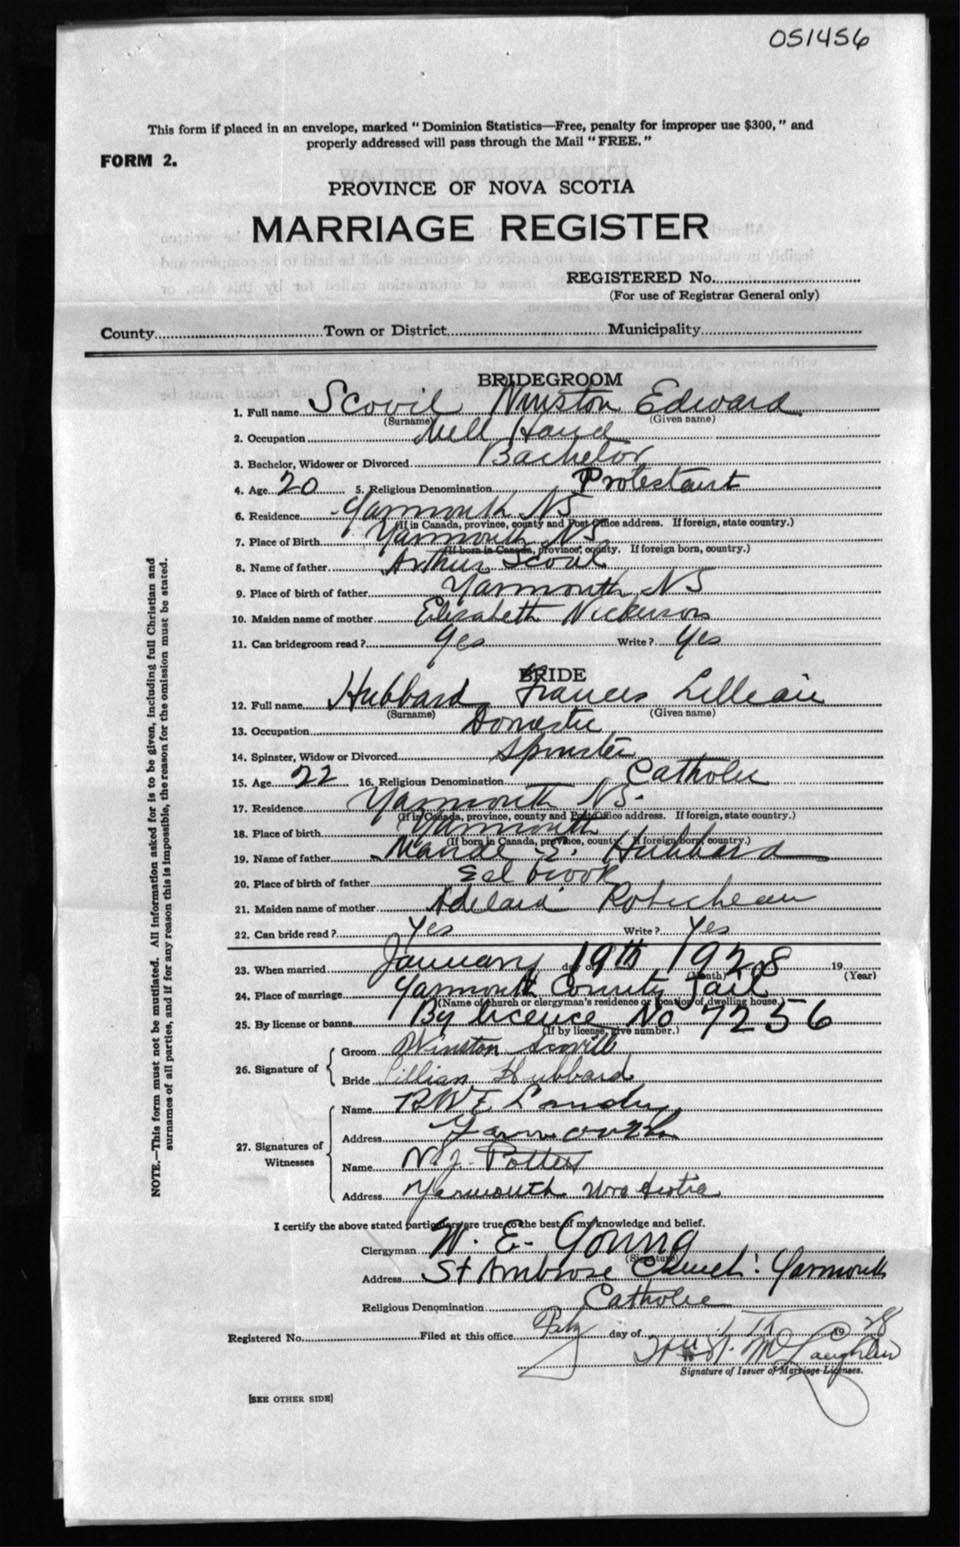 051456
This form if placed in an envelope, marked "Dominion Statistics—Free, penalty for improper use $300," and
properly addressed will pass through the Mail "FREE."
FORM 2.
PROVINCE OF NOVA SCOTIA
MARRIAGE REGISTER
REGISTERED No.
(For use of Registrar General only)
County Town or District Municipality
BRIDEGROOM
1. Full name Scovil Winston Edward
(Surname) (Given name)
2. Occupation Mill Hand
3. Bachelor, Widower or Divorced Bachelor
4. Age 20 5. Religious Denomination Protestant
6. Residence Yarmouth NS
(If in Canada, province, county and Post Office address. If foreign, state country.)
7. Place of Birth Yarmouth NS
(If born in Canada, province, county. If foreign born, country.)
8. Name of father Arthur Scovil
9. Place of birth of father Yarmouth NS
10. Maiden name of mother Elizabeth Nickerson
11. Can bridegroom read? Yes Write? Yes
BRIDE
12. Full name Hubbard Frances Lillean
(Surname) (Given name)
13. Occupation Domestic
14. Spinster, Widow or Divorced Spinster
15. Age 22 16. Religious Denomination Catholic
17. Residence Yarmouth NS.
(If in Canada, province, county and Post Office address. If foreign, state country.)
18. Place of birth Yarmouth
(If born in Canada, province, county. If foreign born, country.)
19. Name of father Mande E. Hubbard
20. Place of birth of father Eel Brook
21. Maiden name of mother Adelaid Roticheau
22. Can bride read? Yes Write? Yes
23. When married January 19th 1928 19 (Year)
(Month)
24. Place of marriage Yarmouth County Jail
(Name of church or clergyman's residence or location of dwelling house.)
25. By license or banns By licence No 7256
(If by license, give number.)
26. Signature of
Groom Winston Scovill
Bride Lillian Hubbard
27. Signatures of Witnesses
Name Landry
Address Yarmouth
Name N. J. Potter
Address Yarmouth Nova Scotia
I certify the above stated particulars are true to the best of my knowledge and belief.
Clergyman W. E. Young
(Signature)
Address St Ambrose Church! Yarmouth
Religious Denomination Catholic
Registered No. Filed at this office day of 19 28
McLaughlin
Signature of Issuer of Marriage Licenses.
[SEE OTHER SIDE]
NOTE.—This form must not be mutilated. All information asked for is to be given, including full Christian and
surnames of all parties, and if for any reason this is impossible, the reason for the omission must be stated.